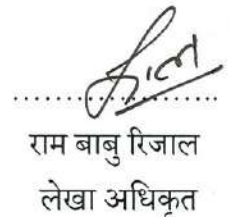 राम बाबु रिजाल
लेखा अधिकृत